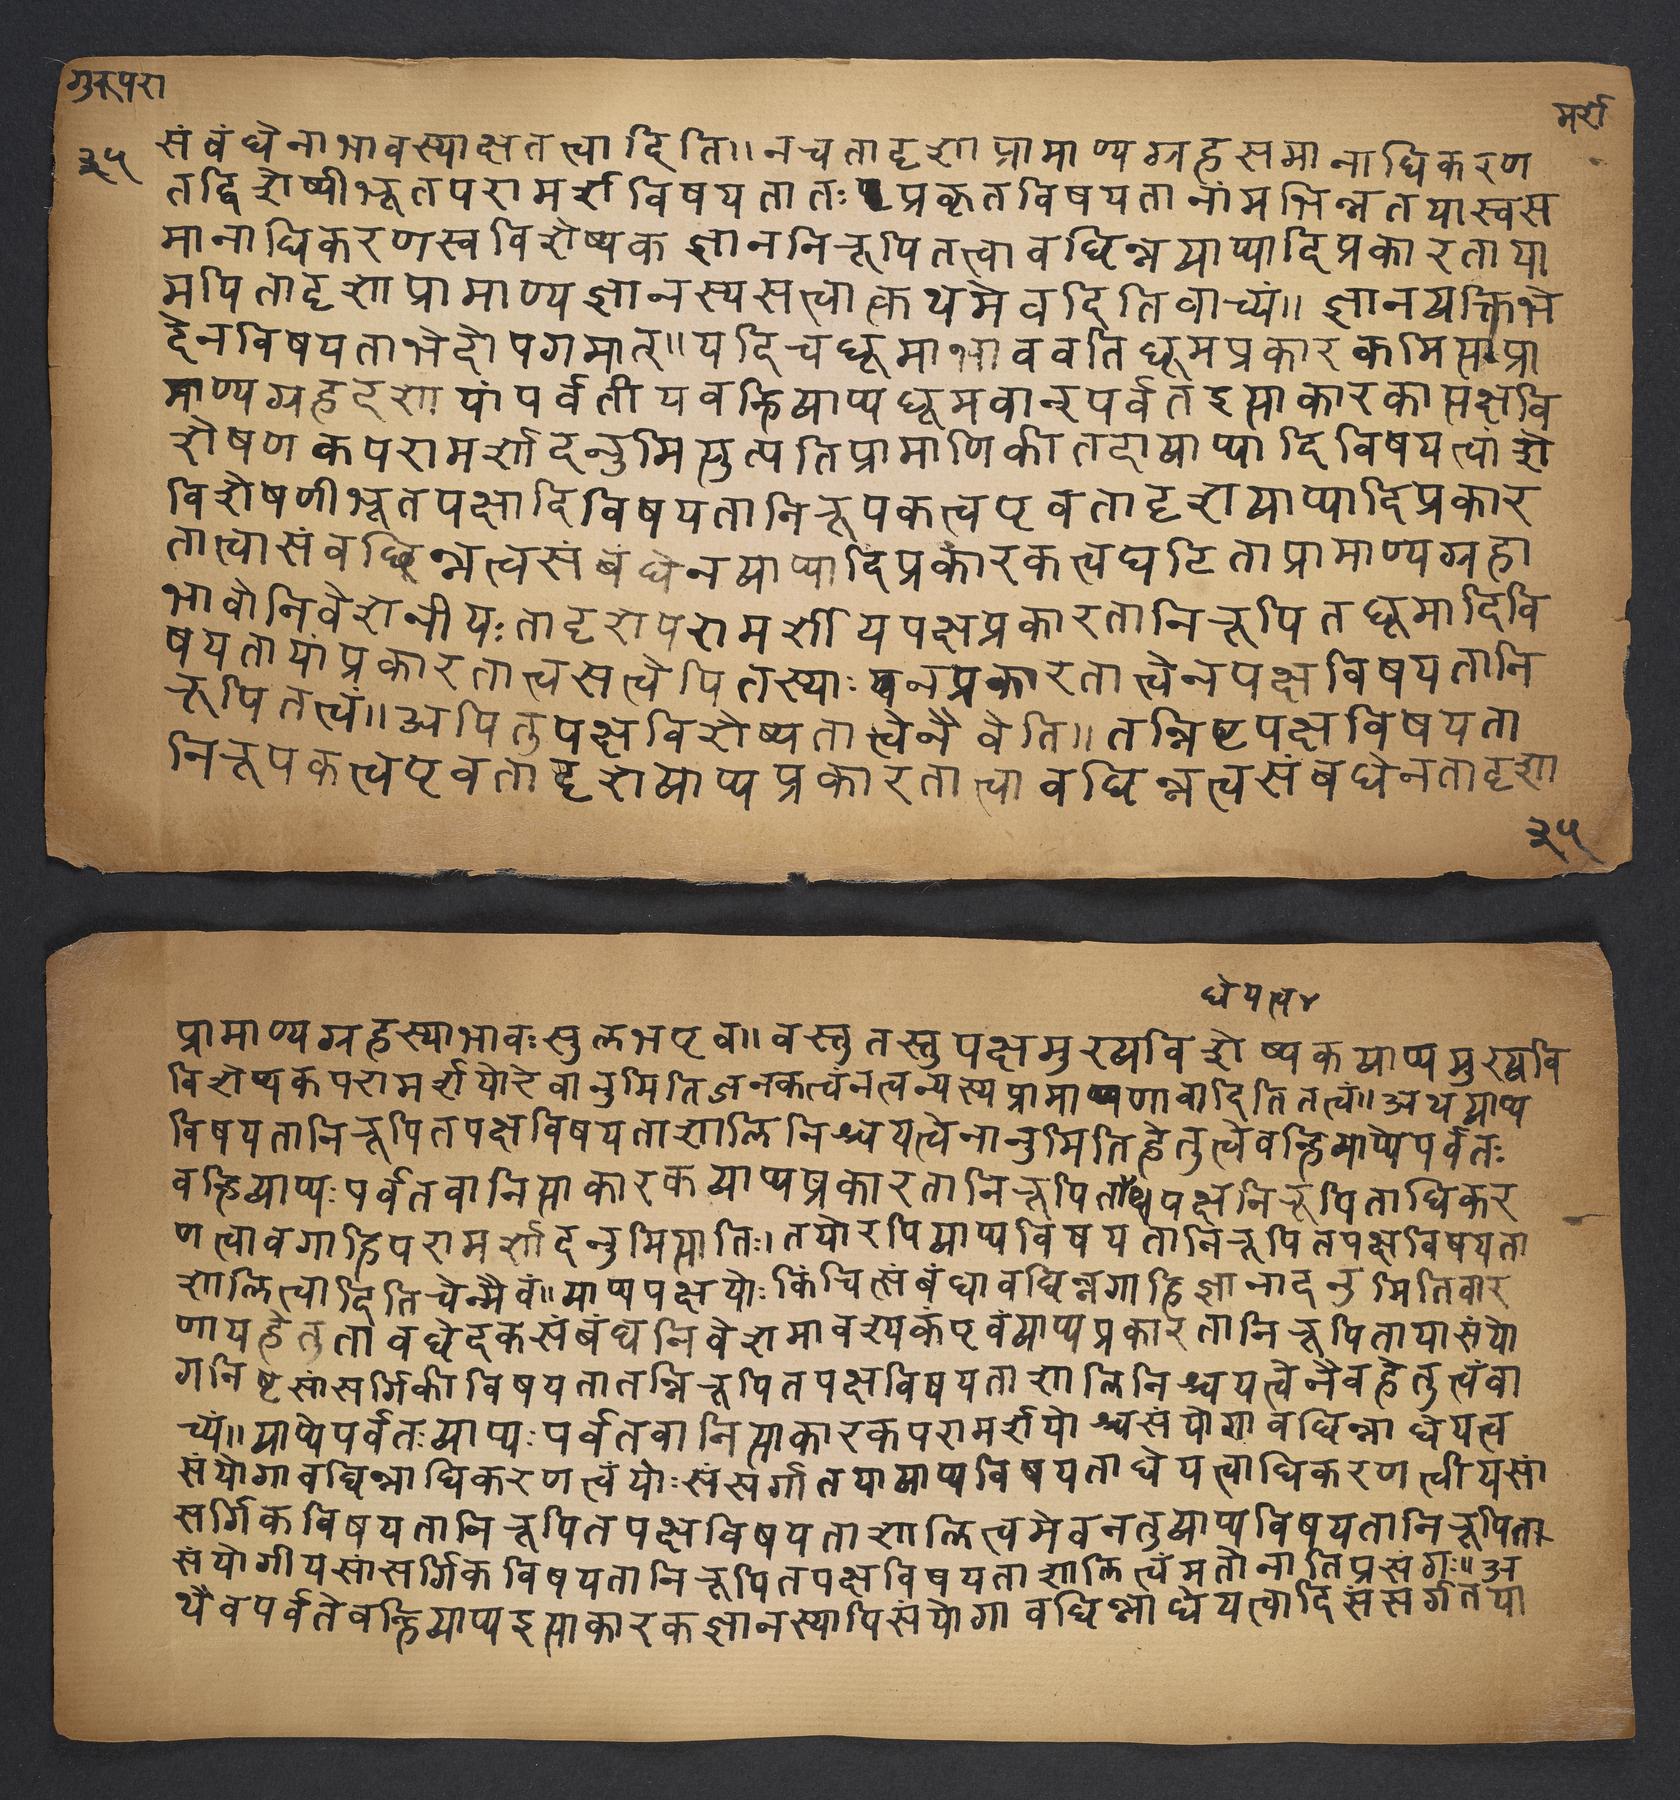 गुरूपरा
मर्शे
३५
संबंधेनाभावस्याक्षतत्वादिति॥ नचतादृशाप्रामाण्यग्रहसमानाधिकरण
तद्विशेष्यीभूतपरामर्शविषयतातः प्रकृतविषयतानांमभिन्नतयास्वस
मानाधिकरणस्वविशेष्यकज्ञाननिरूपितत्वावछिन्नव्याप्यादिप्रकारताया
मपितादृशाप्रामाण्यज्ञानस्यसत्वात्कथमेवदितिवाच्यं॥ ज्ञानव्यक्तिभे
देनविषयताभेदोपगमात्॥ यदिचधूमाभाववतिधूमप्रकारकमित्यप्रा
माण्यग्रहदशायांपर्वतीयवन्हिव्याप्यधूमवान्पर्वतइत्याकारकात्पक्षवि
शेषणकपरामर्शादनुमित्युत्पतिप्रामाणिकीतदाव्याप्यादिविषयत्वांशे
विशेषणीभूतपक्षादिविषयतानिरूपकत्वएवतादृशव्याप्यादिप्रकार
तात्वासंवछिन्नत्वसंबंधेनव्याप्यादिप्रकारकत्वघटिताप्रामाण्यग्रहा
भावोनिवेशनीयः तादृशपरामर्शीयपक्षप्रकारतानिरूपितधूमादिवि
षयतायांप्रकारतात्वसत्वेपितस्याः नप्रकारतात्वेनपक्षविषयतानि
रूपितत्वं॥ अपितुपक्षविशेष्यतात्वेनैवेति॥ तन्निष्टपक्षविषयता
निरूपकत्वएवतादृशव्याप्यप्रकारतात्वावछिन्नत्वसंबधेनतादृशा
३५
धेयत्व४
प्रामाण्यग्रहस्याभावः सुलभएव॥ वस्तुतस्तुपक्षमुख्यविशेष्यकव्याप्यमुख्यवि
विशेष्यकपरामर्शयोरेवानुमितिजनकत्वंनत्वन्यस्यप्रामाण्यणावादितितत्वं॥ अथव्याप्य
विषयतानिरूपितपक्षविषयताशालिनिश्चयत्वेनानुमितिहेतुत्वेवन्हिव्याप्येपर्वतः
वन्हिव्याप्यः पर्वतवानित्याकारकव्याप्यप्रकारतानिरूपितापक्षनिरूपिताधिकर
णत्वावगाहिपरामर्शादनुमित्यातिः। तयोरपिव्याप्यविषयतानिरूपितपक्षविषयता
शालित्वादितिचेन्मैवं॥ व्याप्यपक्षयोः किंचित्संबंधावछिन्नगाहिज्ञानादनुमितिवार
णायहेतुतावछेदकसंबंधनिवेशमावश्यकंएवंव्याप्यप्रकारतानिरूपितायासंयो
गनिष्टसांसर्गिकीविषयतातन्निरूपितपक्षविषयताशालिनिश्चयत्वेनैवहेतुत्वंवा
च्यं॥ व्याप्येपर्वतः व्याप्यः पर्वतवानित्याकारकपरामर्शयोश्चसंयोगावछिन्नाधेयत्व
संयोगावछिन्नाधिकरणत्वंयोः संसर्गतयाव्याप्यविषयताधेयत्वाधिकरणत्वीयसां
सर्गिकविषयतानिरूपितपक्षविषयताशालित्वमेवनतुव्याप्यविषयतानिरूपिता
संयोगीयसांसर्गिकविषयतानिरूपितपक्षविषयताशालित्वंमतोनातिप्रसंगः॥ अ
थैवपर्वतेवन्हिव्याप्यइत्याकारकज्ञानस्यापिसंयोगावछिन्नाधेयत्वादिसंसर्गतया